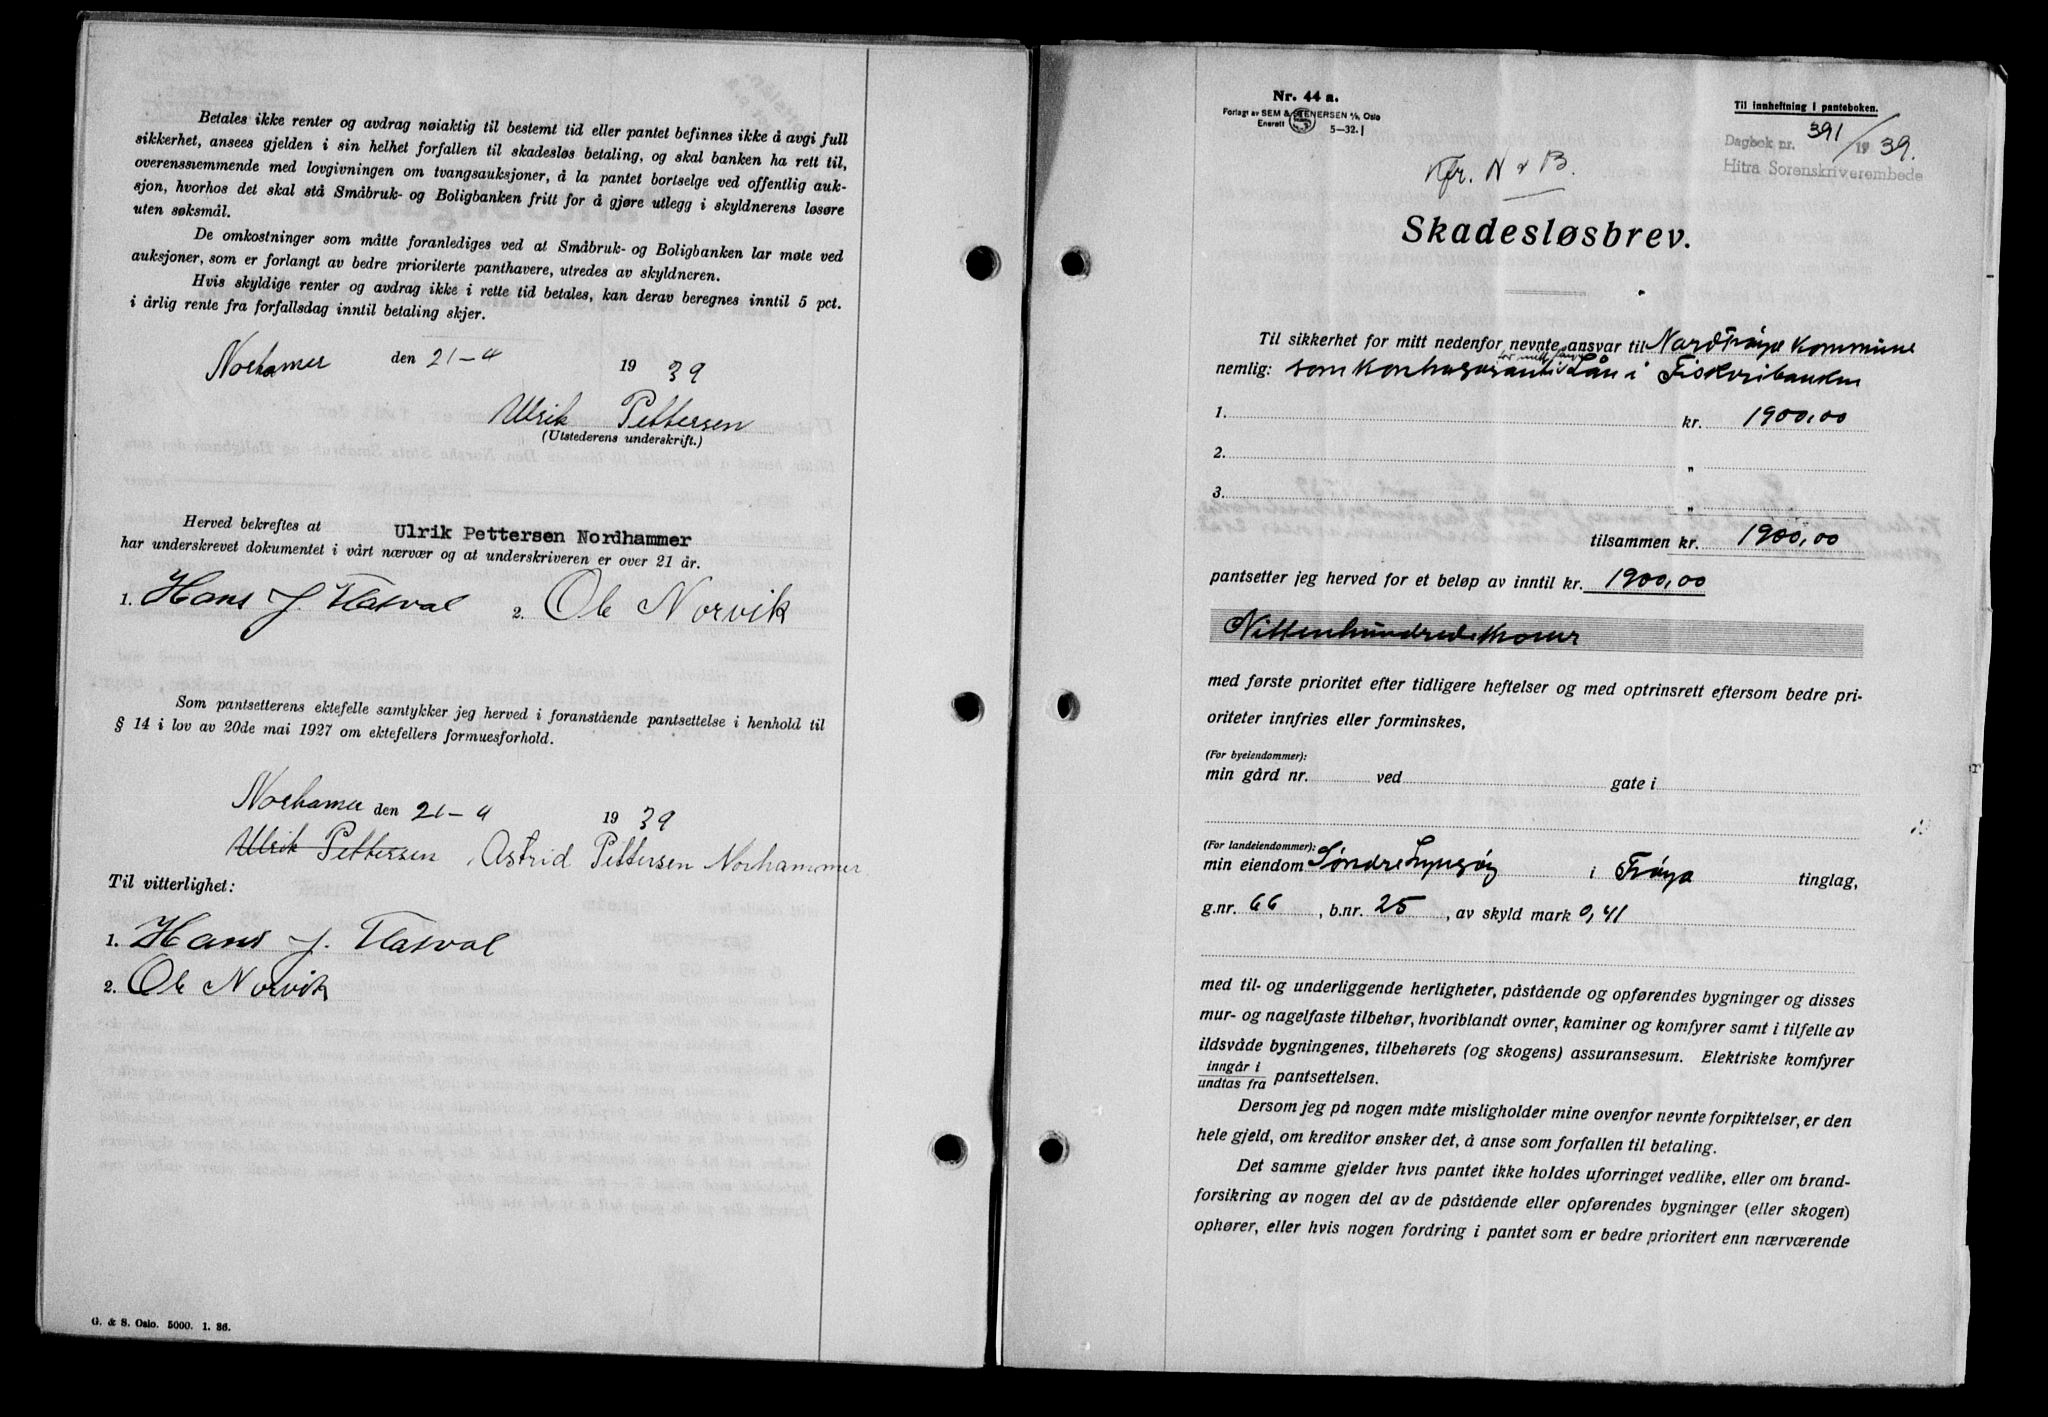 Betales ikke renter og avdrag nøiaktig til bestemt tid eller pantet befinnes ikke å avgi full
sikkerhet, ansees gjelden i sin helhet forfallen til skadesløs betaling, og skal banken ha rett til,
overensstemmende med lovgivningen om tvangsauksjoner, å la pantet bortselge ved offentlig auk-
sjon, hvorhos det skal stå Småbruk- og Boligbanken fritt for å gjøre utlegg i skyldnerens løsøre
uten søksmål.
De omkostninger som måtte foranlediges ved at Småbruk- og Boligbanken lar møte ved
auksjoner, som er forlangt av bedre prioriterte panthavere, utredes av skyldneren.
Hvis skyldige renter og avdrag ikke i rette tid betales, kan derav beregnes inntil 5 pct.
i årlig rente fra forfallsdag inntil betaling skjer.
Norhamer den 21-4 1939
Ulrik Pettersen
(Utstederens underskrift.)
Herved bekreftes at Ulrik Pettersen Nordhammer
har underskrevet dokumentet i vårt nærvær og at underskriveren er over 21 år.
1. Hans J. Flatval 2. Ole Norvik
Som pantsetterens ektefelle samtykker jeg herved i foranstående pantsettelse i henhold til
§ 14 i lov av 20de mai 1927 om ektefellers formuesforhold.
Norhamer den 21-4 1939
Ulrik Pettersen, Astrid Pettersen Norhammer
Til vitterlighet:
1. Hans J. Flatval
2. Ole Norvik
G. & S. Oslo. 5000. 1. 36.
Nr. 44 a.
Forlagt av SEM & STENERSEN A/S, Oslo
Enerett 5-32.
Til innheftning i panteboken.
Dagbok nr. 391/1939.
Hitra Sorenskriverembede
N & B.
Skadesløsbrev.
Til sikkerhet for mitt nedenfor nevnte ansvar til Nord Frøya Kommune
for mitt
nemlig: som lån i Fiskeribanken
1. kr. 1900,00
2. "
3. "
tilsammen kr. 1900,00
pantsetter jeg herved for et beløp av inntil kr. 1900,00
Nittenhundrede kroner
med første prioritet efter tidligere heftelser og med optrinsrett eftersom bedre pri-
oriteter innfries eller forminskes,
(For byeiendommer):
min gård nr. ved gate i
(For landeiendommer):
min eiendom Søndre Lyngøy i Frøya tinglag,
g.nr. 66, b.nr. 25, av skyld mark 0,41
med til- og underliggende herligheter, påstående og opførendes bygninger og disses
mur- og nagelfaste tilbehør, hvoriblandt ovner, kaminer og komfyrer samt i tilfelle av
ildsvåde bygningenes, tilbehørets (og skogens) assuransesum. Elektriske komfyrer
inngår i
undtas fra pantsettelsen.
Dersom jeg på nogen måte misligholder mine ovenfor nevnte forpiktelser, er den
hele gjeld, om kreditor ønsker det, å anse som forfallen til betaling.
Det samme gjelder hvis pantet ikke holdes uforringet vedlike, eller om brand-
forsikring av nogen del av de påstående eller opførendes bygninger (eller skogen)
ophører, eller hvis nogen fordring i pantet som er bedre prioritert enn nærværende